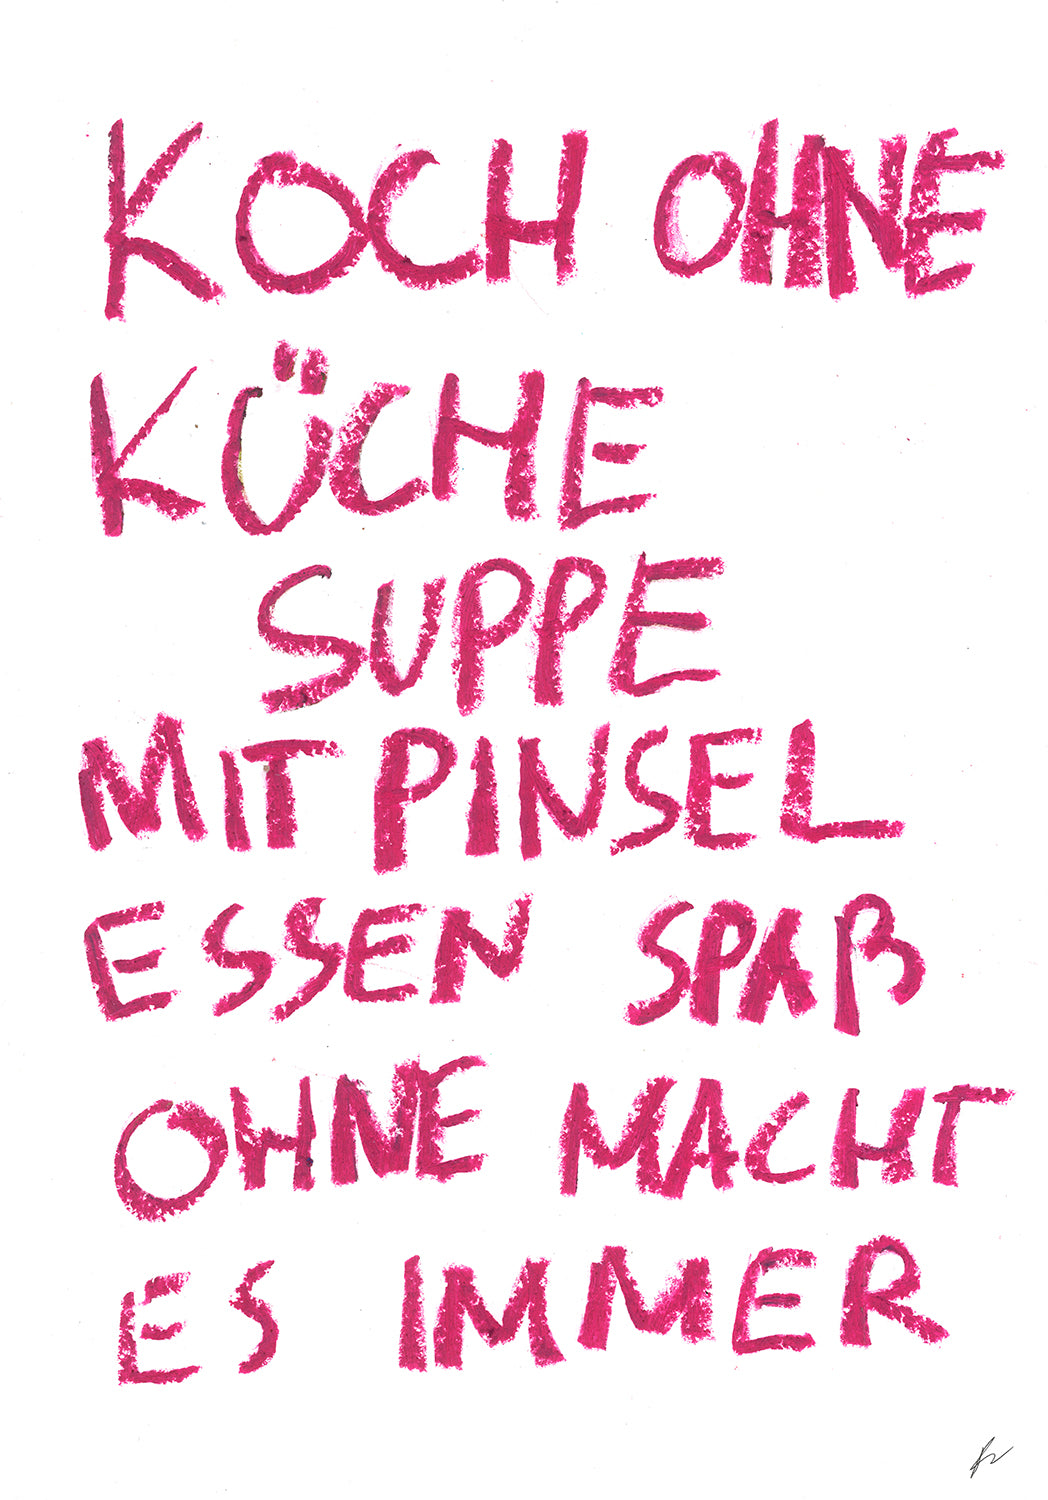 KOCH OHNE
KÜCHE
SUPPE
MIT PINSEL
ESSEN SPAß
OHNE MACHT
ES IMMER